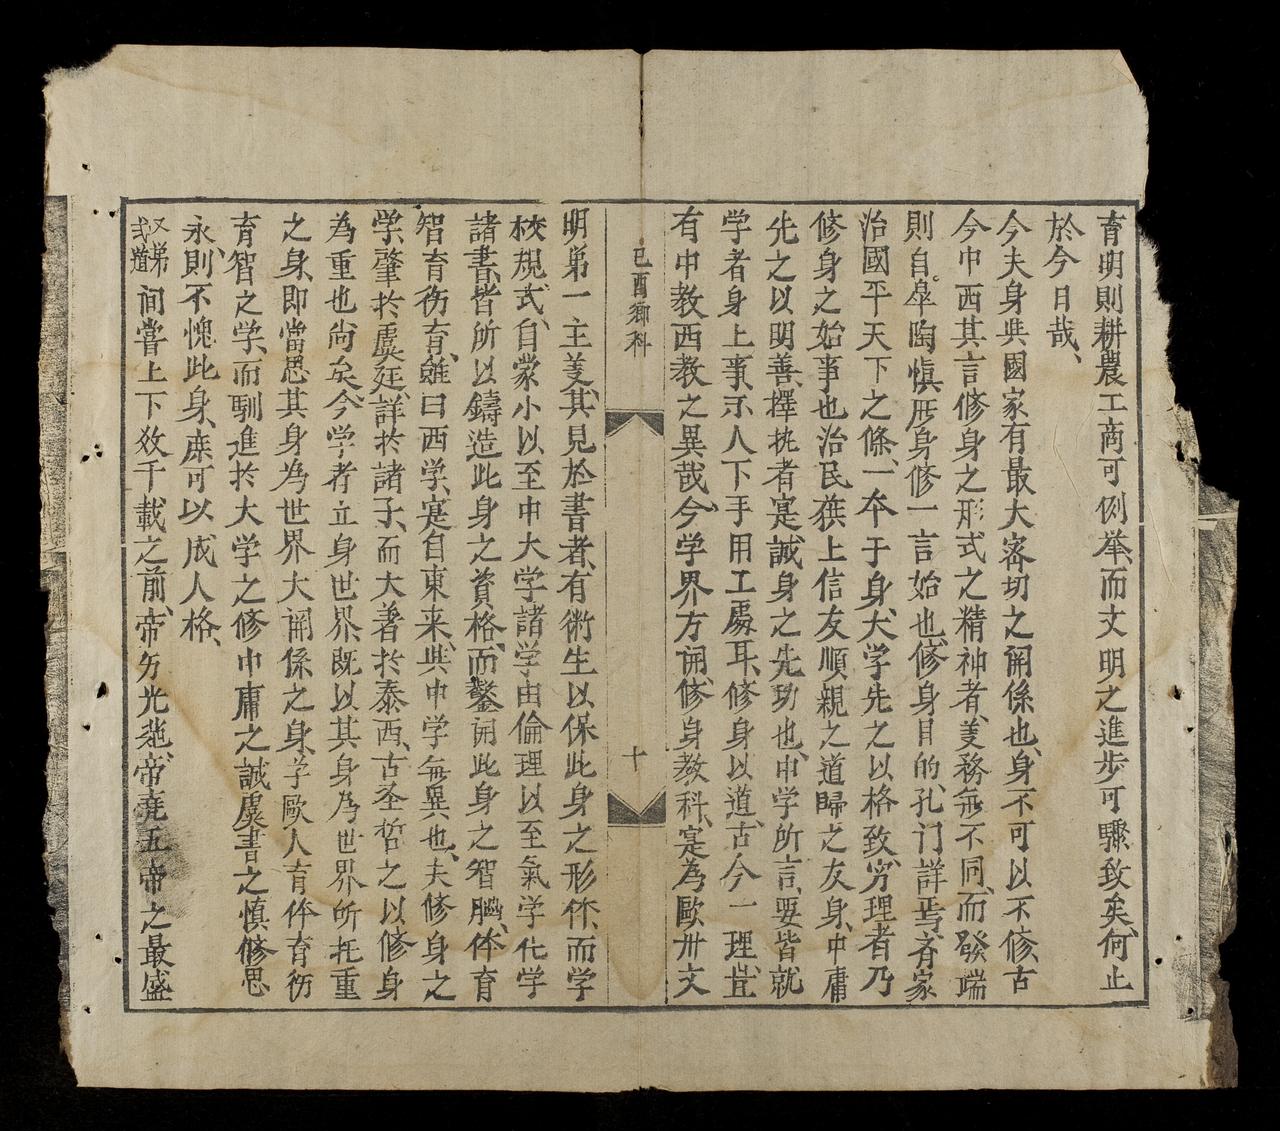 育明則耕農工商可例举、而文明之進歩可驟致矣、何止
於今日哉、
今夫身與國家有最大宻切之関係也、身不可以不修、古
今中西其言修身之形式之精神者、羙務無不同、而發端
則自皐陶慎厥身修一言始也、修身目的、孔门詳焉、斉家
治國平天下之條、一夲于身、大学先之以格致、穷理者乃
修身之始事也、治民獲上信友順親之道、歸之友身、中庸
先之以明善、擇执者寔誠身之先功也、中学所言、要皆就
学者身上事、示人下手用工處耳、修身以道、古今一理、豈
有中教西教之異哉、今学界方開、修身教科、寔為歐卅文
己酉鄉科
十
明第一主羙、其見於書者、有衛生以保此身之形体、而学
校規式、自蒙小以至中大学諸学、由倫理以至氣学化学
諸書、皆所以鑄造此身之資格、而鑿開此身之智腦、体育
智育㣔育、雖曰西学、寔自東来、與中学無異也、夫修身之
学、肇於虞廷、詳於諸子、而大著於泰西、古圣哲之以修身
為重也尚矣、今学者立身世界、既以其身為世界所托重
之身、即當思其身為世界大関係之身、学歐人育体育㣔
育智之学、而馴進於大学之修、中庸之誠、虞書之慎修思
永、則不愧此身、庶可以成人格、
又第弍道 间嘗上下攷千載之前、帝 光 、帝堯五帝之最盛